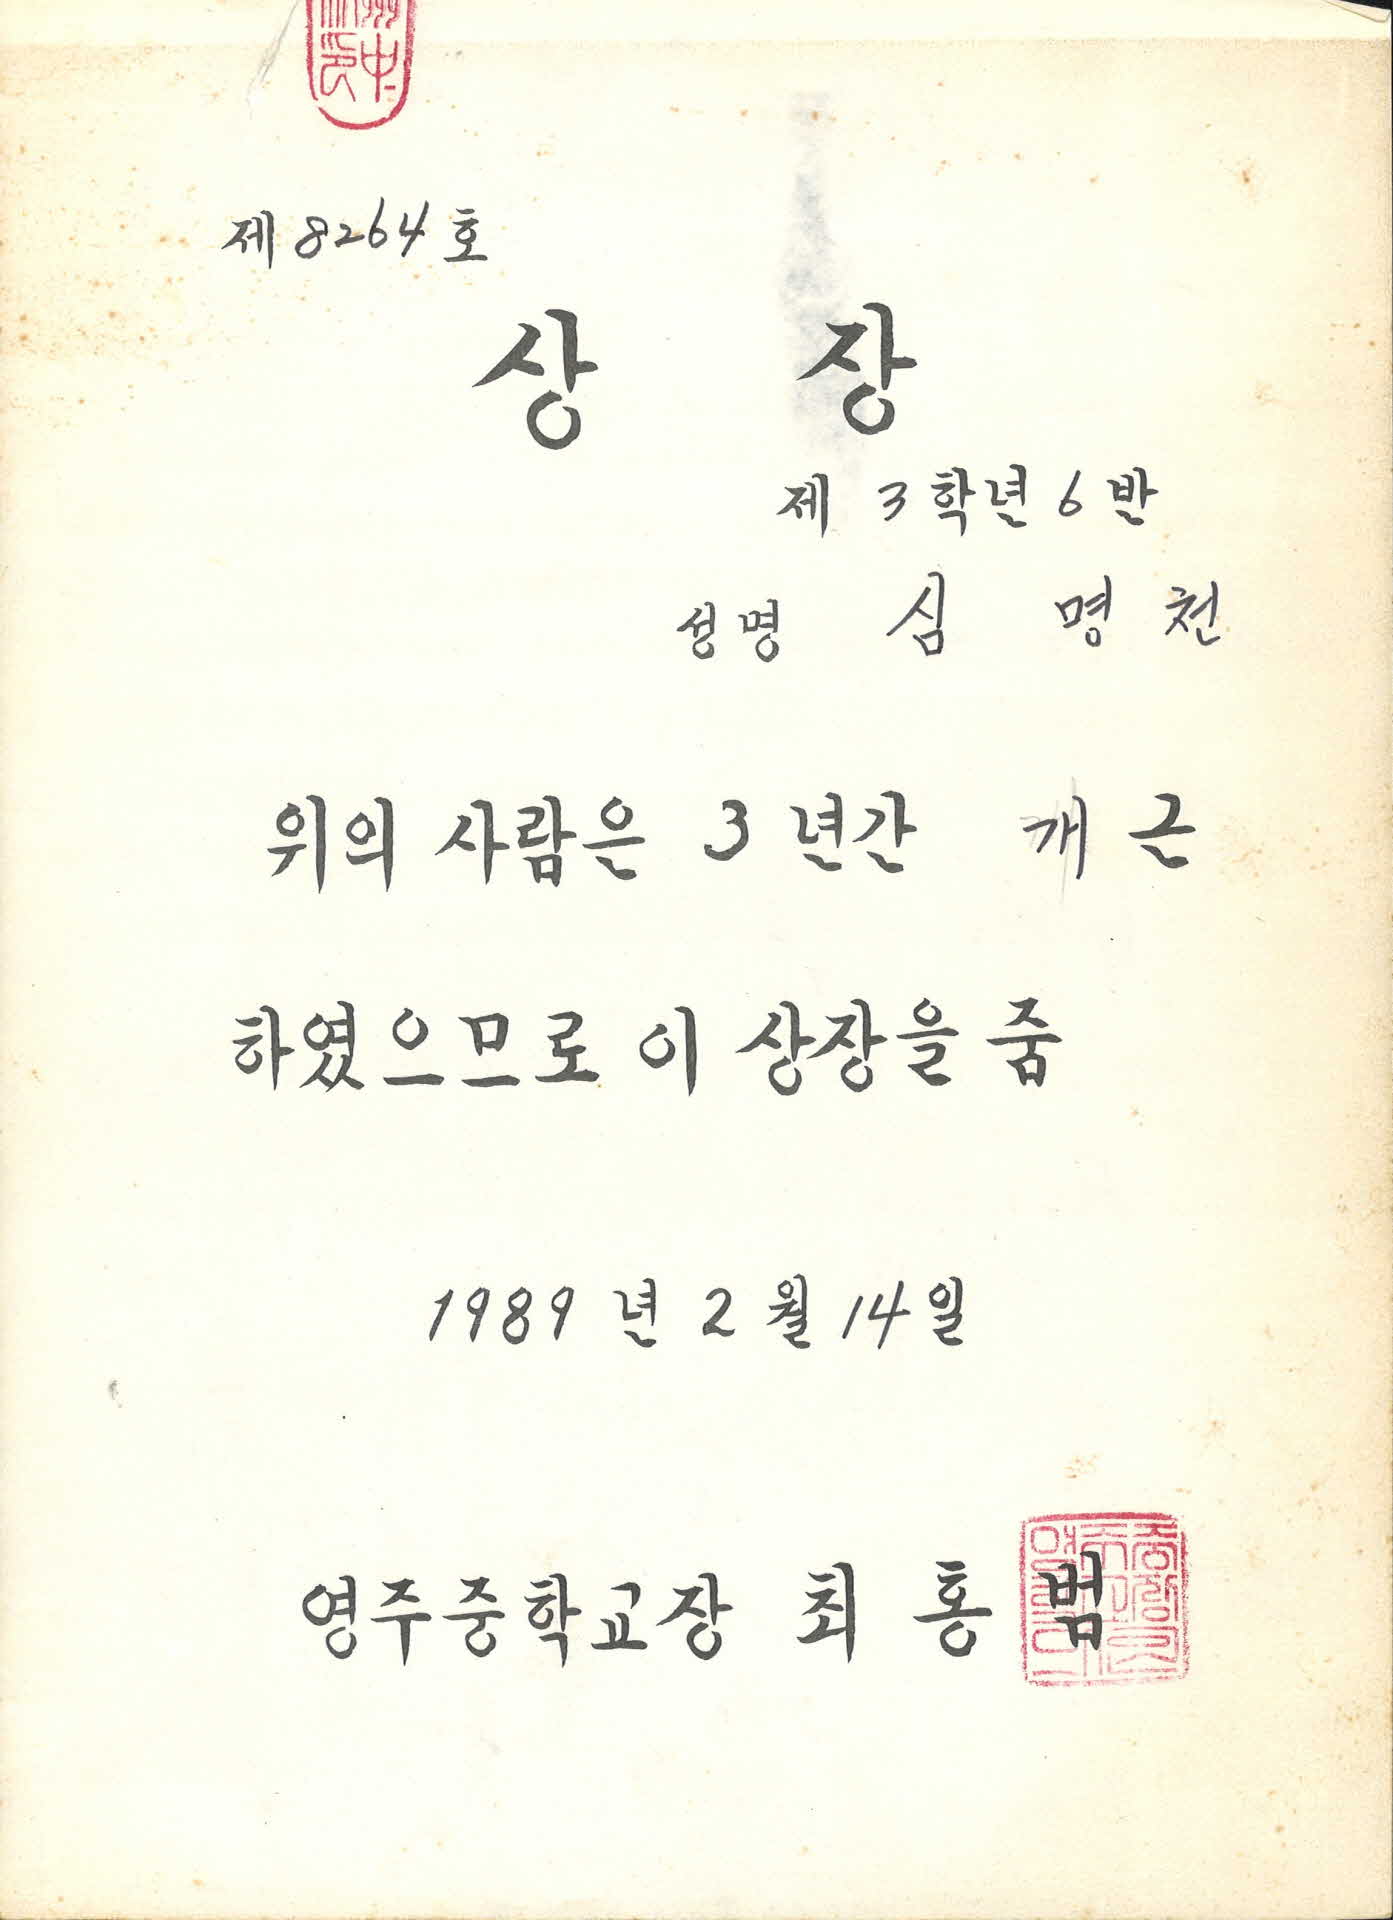 제 8264 호
상 장
제 3 학년 6 반
성명 심 명 천
위의 사람은 3 년간 개 근
하였으므로 이 상장을 줌
1989 년 2 월 14 일
영주중학교장 최 홍 범